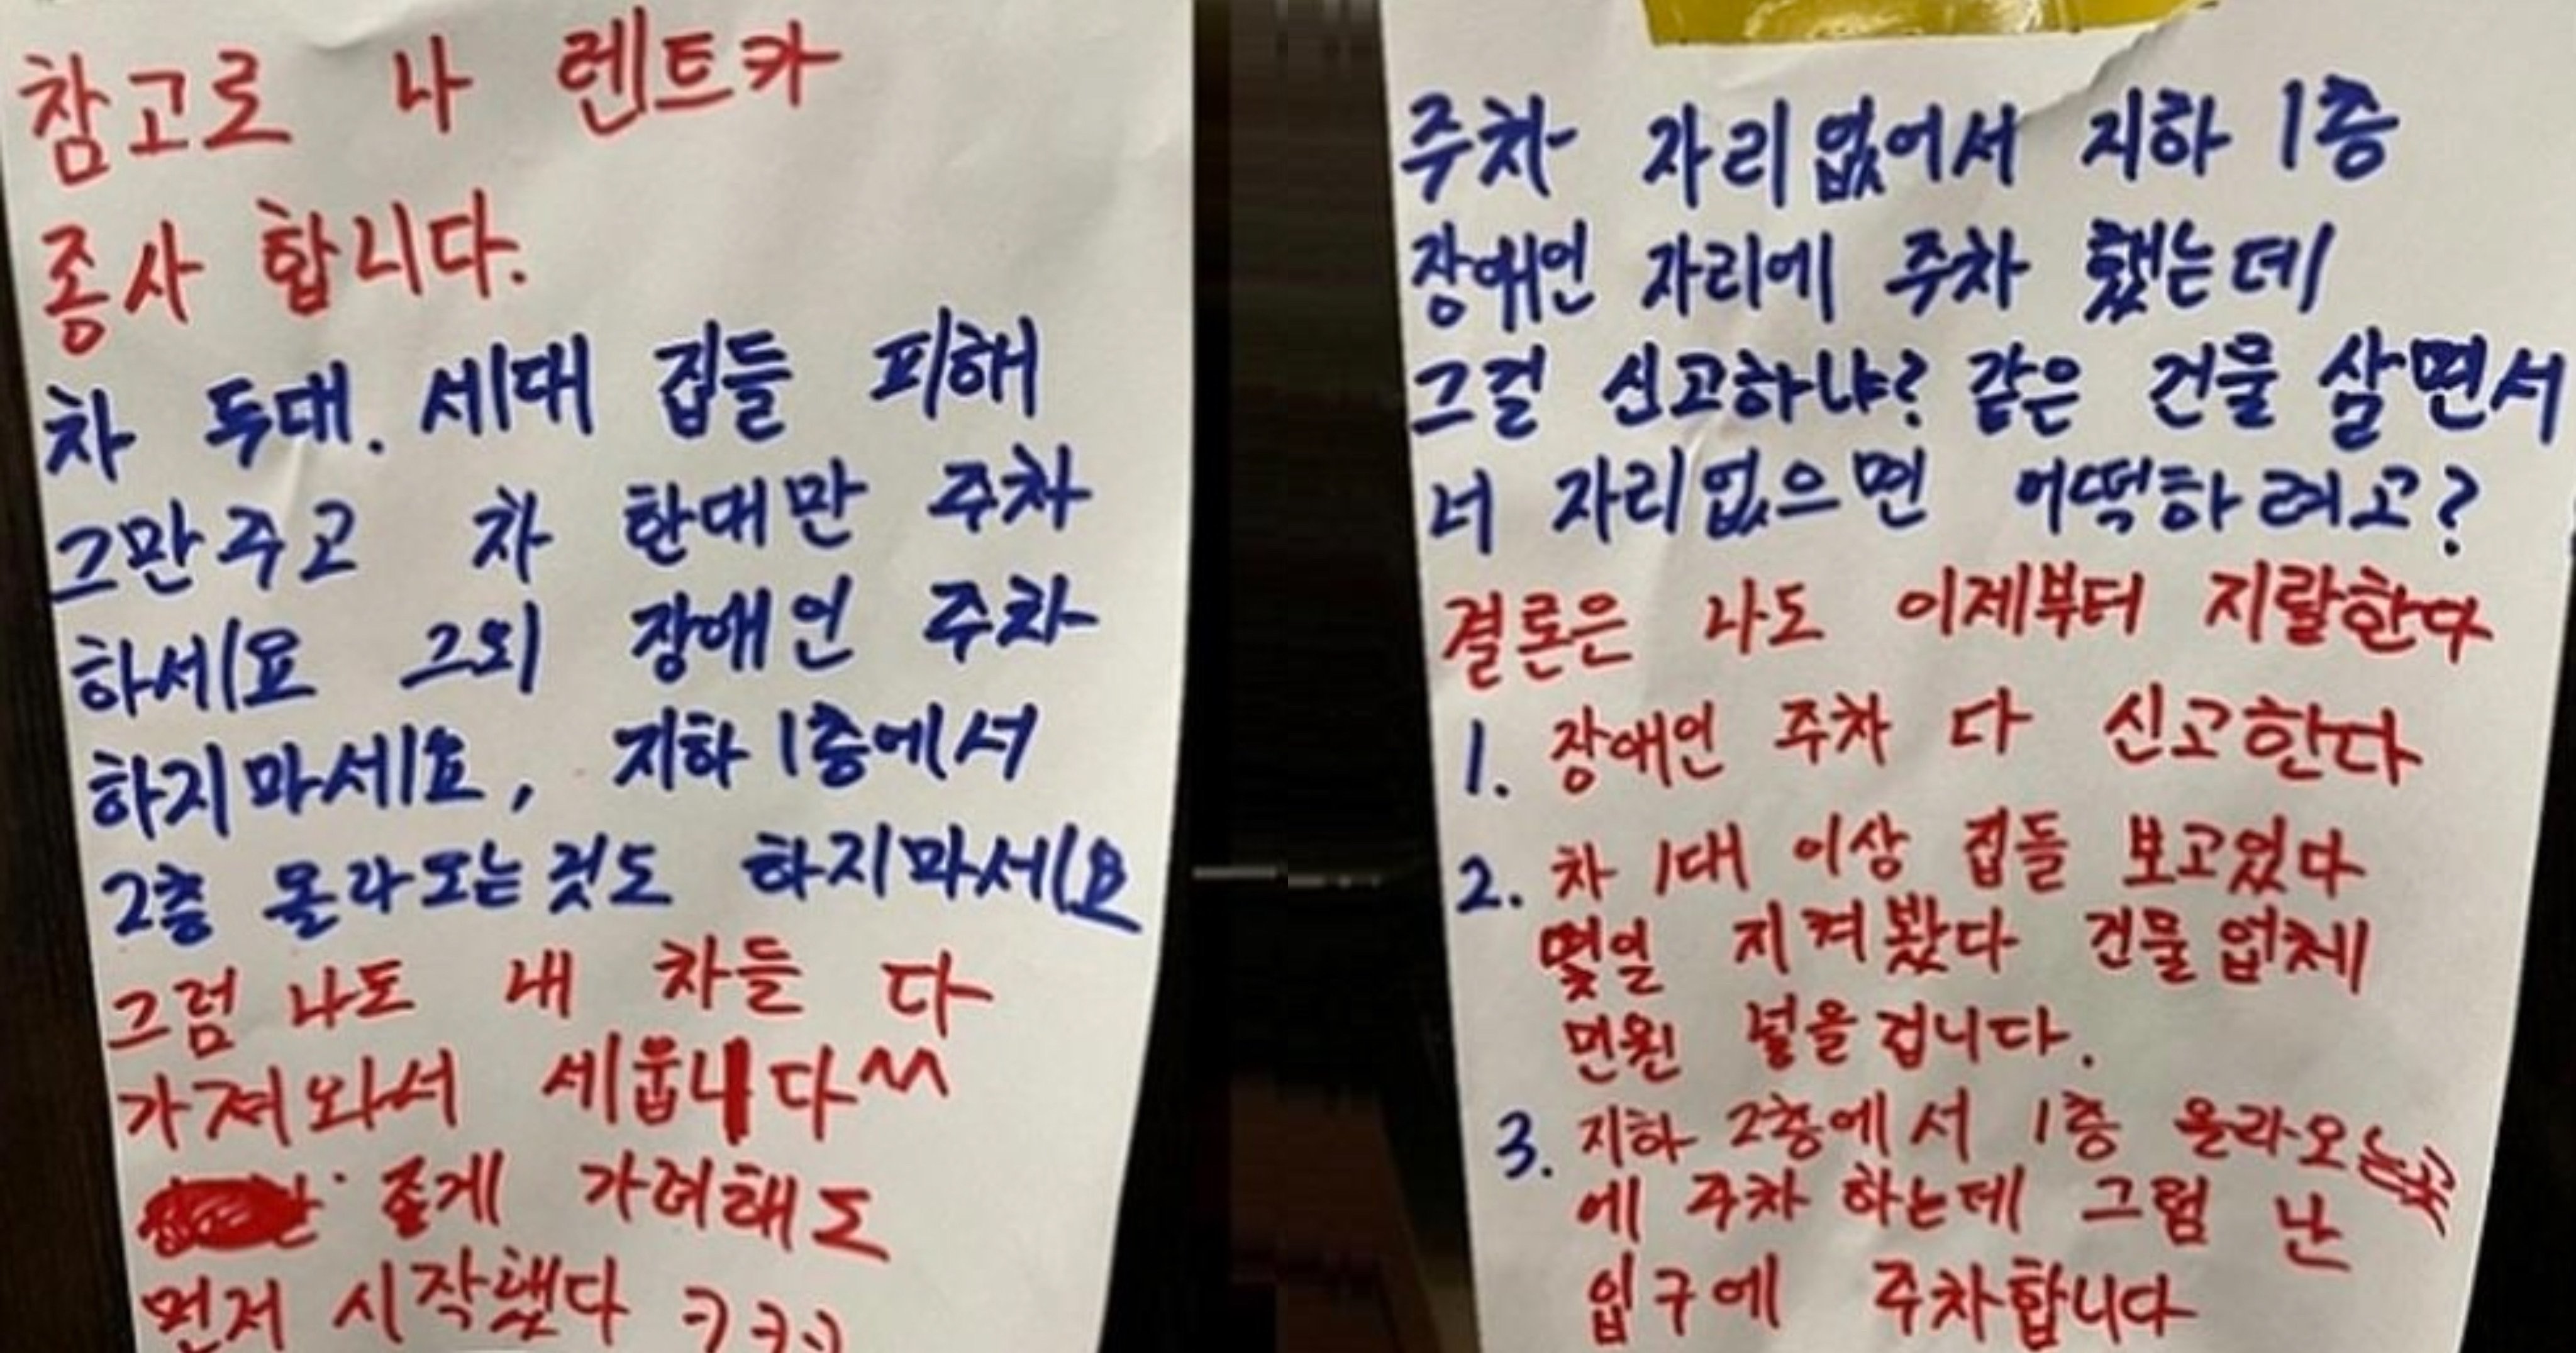 참고로 나 렌트카
종사 합니다.
차 두대. 세대 집들 피해
그만주고 차 한대만 주차
하세요 그외 장애인 주차
하지마세요, 지하 1층에서
2층 올라오는것도 하지마세요
그럼 나도 내 차들 다
가져와서 세웁니다^^
좋게 가려해도
먼저 시작했다 ㅋㅋㅋ
주차 자리없어서 지하 1층
장애인 자리에 주차 했는데
그걸 신고하냐? 같은 건물 살면서
너 자리없으면 어떡하려고?
결론은 나도 이제부터 지랄한다
1. 장애인 주차 다 신고한다
2. 차 1대 이상 집들 보고있다
몇일 지켜봤다 건물업체
민원 넣을겁니다.
3. 지하 2층에서 1층 올라오는곳
에 주차 하는데 그럼 난
입구에 주차합니다